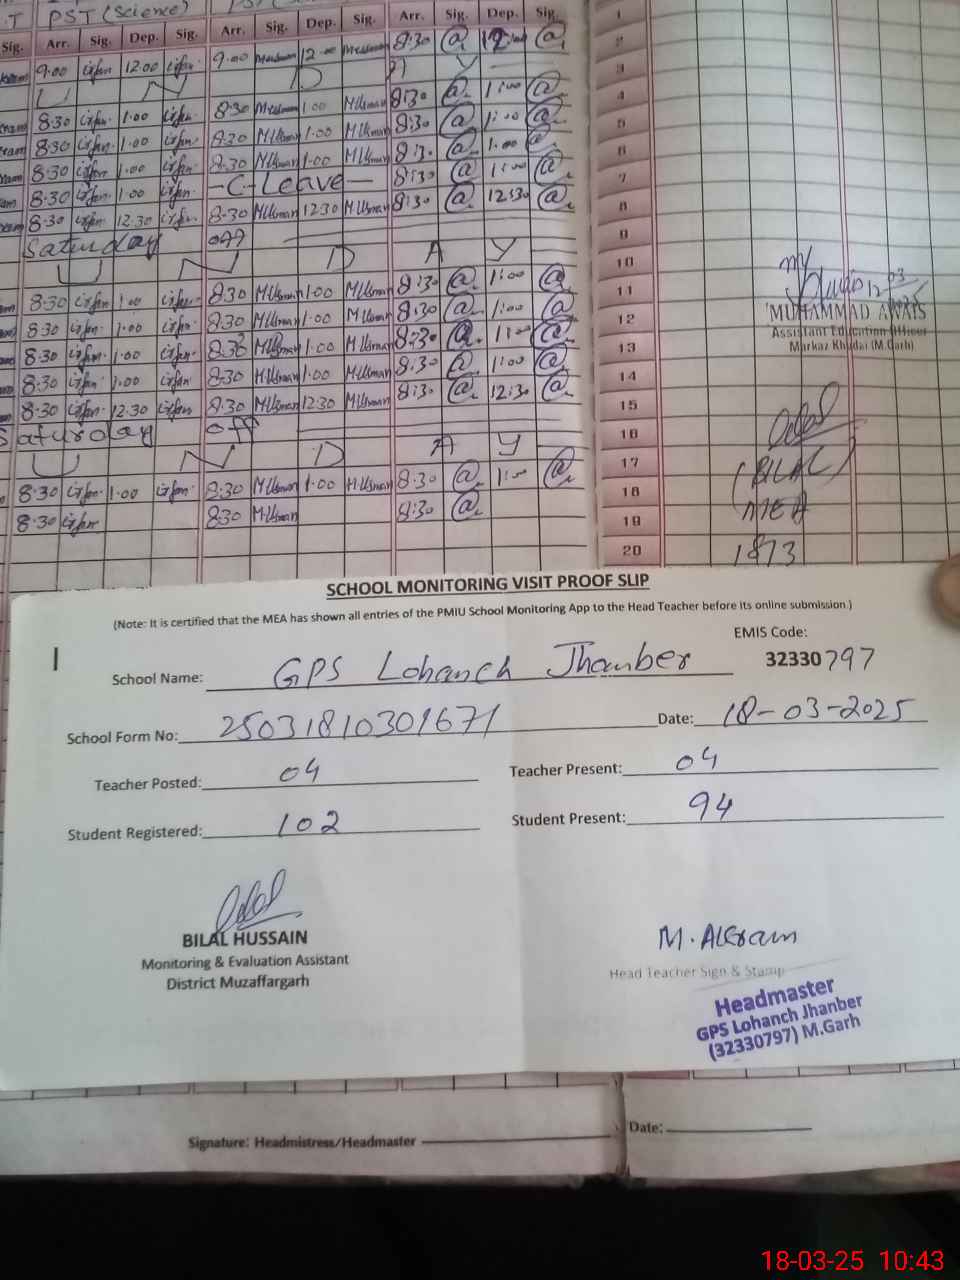 PST (Science)
Sig. Arr. Sig. Dep. Sig. Arr. Sig. Dep. Sig. Arr. Sig. Dep. Sig.
9.00 Irfan 12.00 Irfan 9.00 12.00 8:30 @ 12:00 @
U N D A Y
8.30 Irfan 1.00 Irfan 8.30 1.00 M Usman 8:30 @ 1:00 @
8.30 Irfan 1.00 Irfan 8.30 M Usman 1.00 M Usman 8:30 @ 1:00 @
8.30 Irfan 1.00 Irfan 8.30 M Usman 1.00 M Usman 8:30 @ 1:00 @
8.30 Irfan 1.00 Irfan -C-Leave- 8:30 @ 1:00 @
8.30 Irfan 12.30 Irfan 8.30 M Usman 12.30 M Usman 8:30 @ 12:30 @
Saturday off
U N D A Y
8.30 Irfan 1.00 Irfan 8.30 M Usman 1.00 M Usman 8:30 @ 1:00 @
8.30 Irfan 1.00 Irfan 8.30 M Usman 1.00 M Usman 8:30 @ 1:00 @
8.30 Irfan 1.00 Irfan 8.30 M Usman 1.00 M Usman 8:30 @ 1:00 @
8.30 Irfan 1.00 Irfan 8.30 M Usman 1.00 M Usman 8:30 @ 1:00 @
8.30 Irfan 12.30 Irfan 8.30 M Usman 12.30 M Usman 8:30 @ 12:30 @
Saturday off
U N D A Y
8.30 Irfan 1.00 Irfan 8.30 M Usman 1.00 M Usman 8:30 @ 1:00 @
8.30 Irfan 8.30 M Usman 8:30 @
1
2
3
4
5
6
7
8
9
10
11
12
13
14
15
16
17
18
19
20
MUHAMMAD AWAIS
Assistant Education Officer
Markaz Khudai (M.Garh)
(BILAL)
MEA
1873
SCHOOL MONITORING VISIT PROOF SLIP
(Note: It is certified that the MEA has shown all entries of the PMIU School Monitoring App to the Head Teacher before its online submission.)
EMIS Code:
School Name: GPS Lohanch Jhanber 32330797
School Form No: 25031810301671 Date: 18-03-2025
Teacher Posted: 04 Teacher Present: 04
Student Registered: 102 Student Present: 94
BILAL HUSSAIN
Monitoring & Evaluation Assistant
District Muzaffargarh
M. Akram
Head Teacher Sign & Stamp
Headmaster
GPS Lohanch Jhanber
(32330797) M.Garh
Signature: Headmistress/Headmaster
Date:
18-03-25 10:43